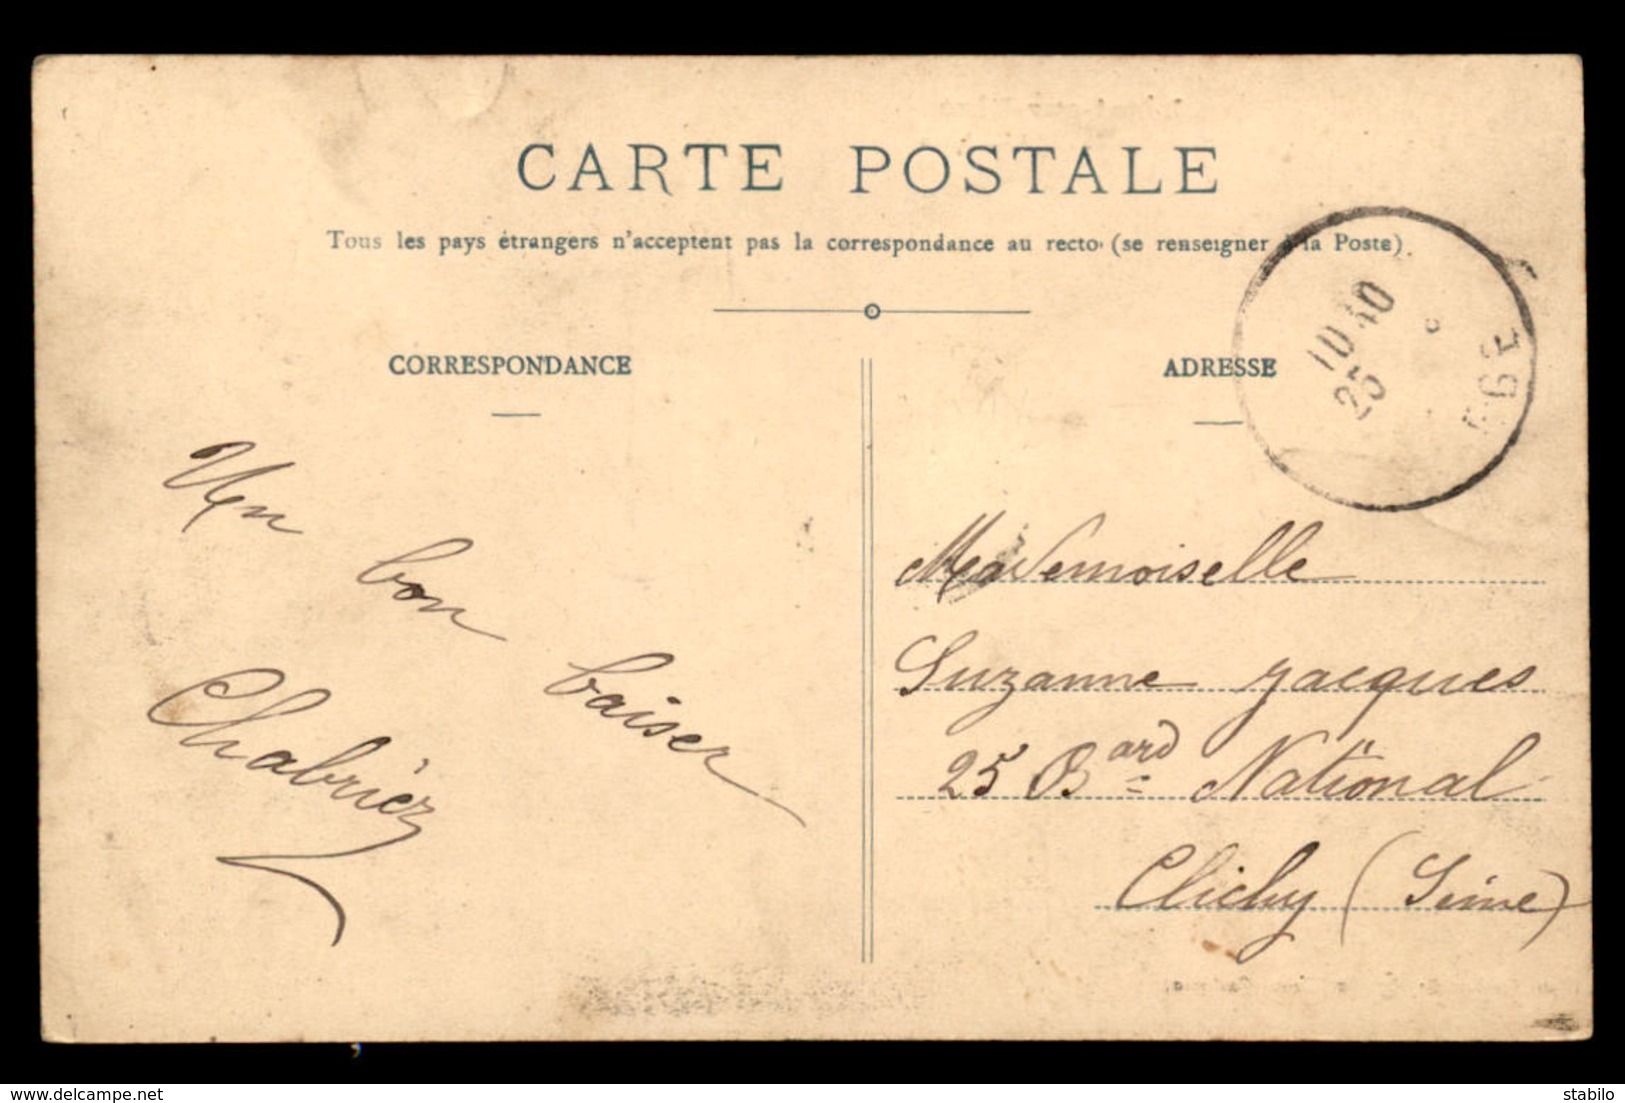 CARTE POSTALE
Tous les pays étrangers n'acceptent pas la correspondance au recto (se renseigner à la Poste)
CORRESPONDANCE
ADRESSE
10 40
25
Un bon baiser
Chabriez
Mademoiselle
Suzanne Jacques
25 Bard National
Clichy (Seine)
www.delcampe.net
stabilo